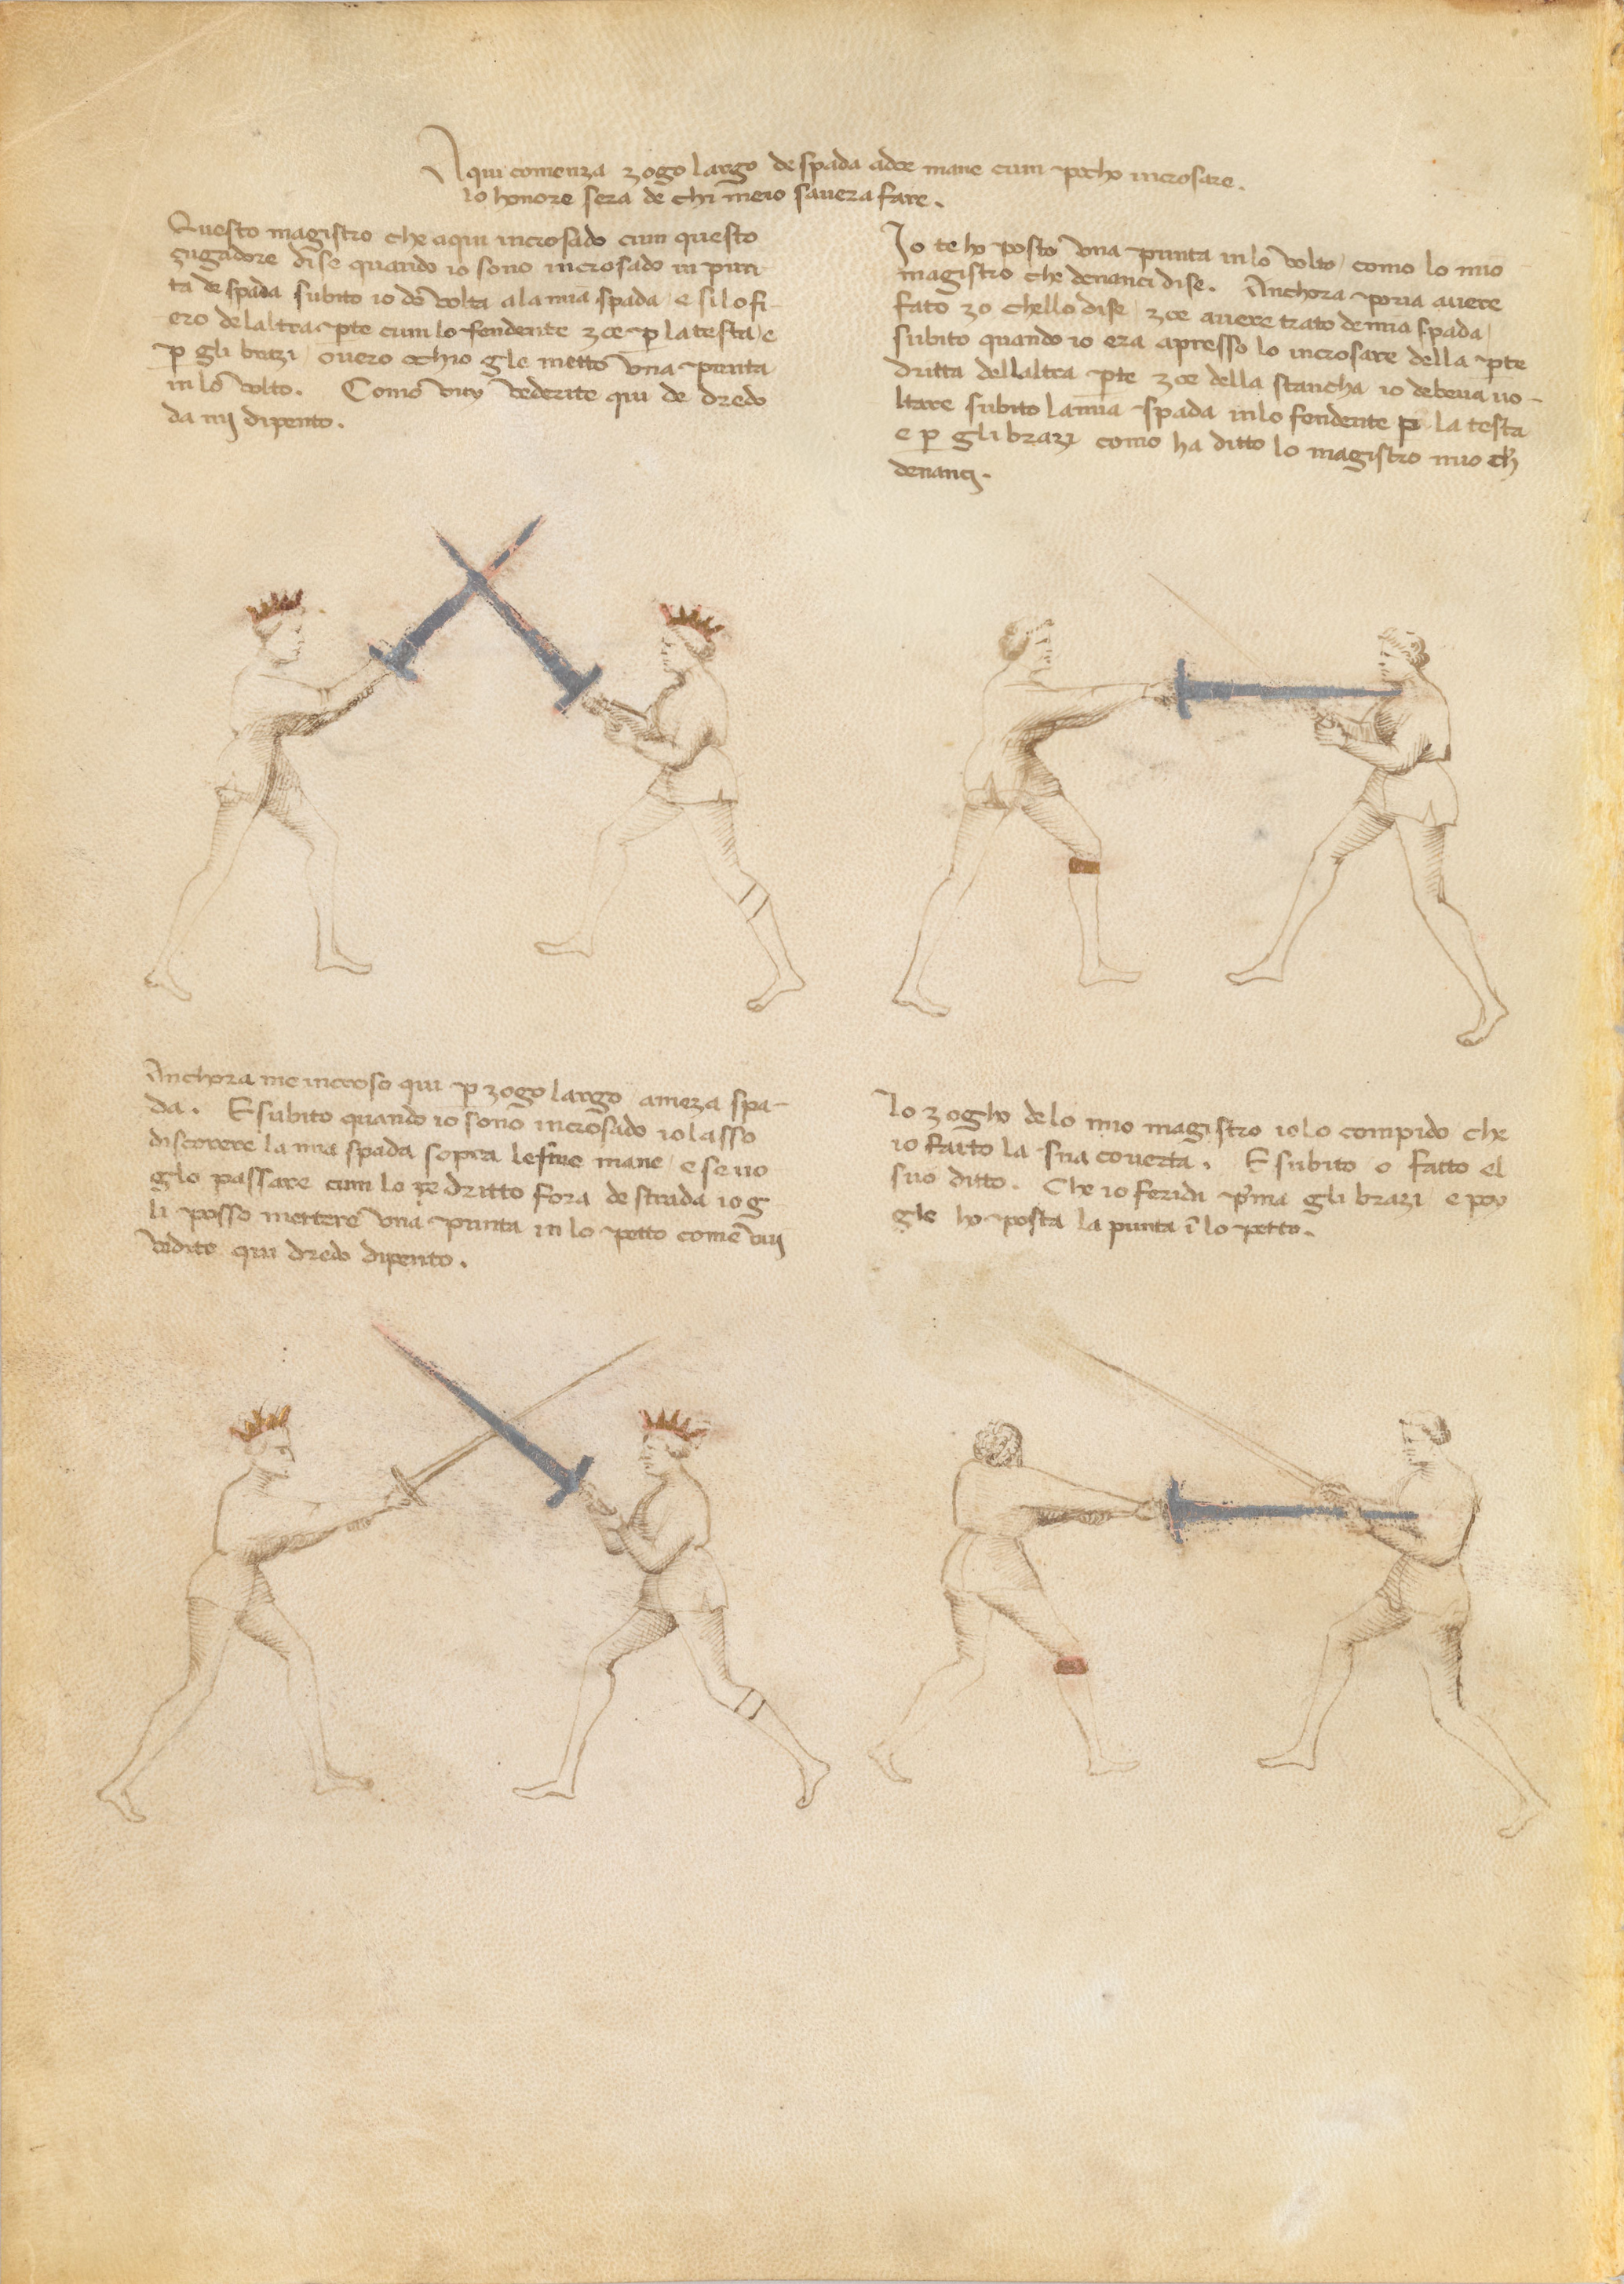 Aqui comenza zogo largo de spada a doe mane cum pocho incrosare.
lo honore sera de chi meio savera fare.
Questo magistro che aqui incrosado cum questo
zugadore dise quando io sono incrosado in pun-
ta de spada subito io do volta a la mia spada e si lo fi-
ero de laltra pte cum lo fendente zoe p la testa e
p gli brazi / overo chio gle metto una punta
in lo volto. Como vuy vederite qui de dredo
da mi dipento.
Io te ho posto una punta in lo volto / como lo mio
magistro che denanci dise. Anchora poria avere
fato zo chello dise / zoe avere trato de mia spada /
subito quando io era apresso lo incrosare della pte
dritta dellaltra pte zoe della stancha io debeua uo-
ltare subito la mia spada in lo fendente p la testa
e p gli brazi como ha ditto lo magistro mio ch
denanci.
Anchora me incroso qui p zogo largo / a meza spa-
da. E subito quando io sono incrosado io lasso
discorere la mia spada sopra le sue mane / e se vo
glo passare cum lo pe dritto fora de strada io g
li posso mettere una punta in lo petto come vuy
vedite qui dredo dipento.
Lo zogho de lo mio magistro io lo compido che
io fatto la sua coverta. E subito o fatto el
suo ditto. Che io feridi pma gli brazi / e poy
gle ho posta la punta i lo petto.